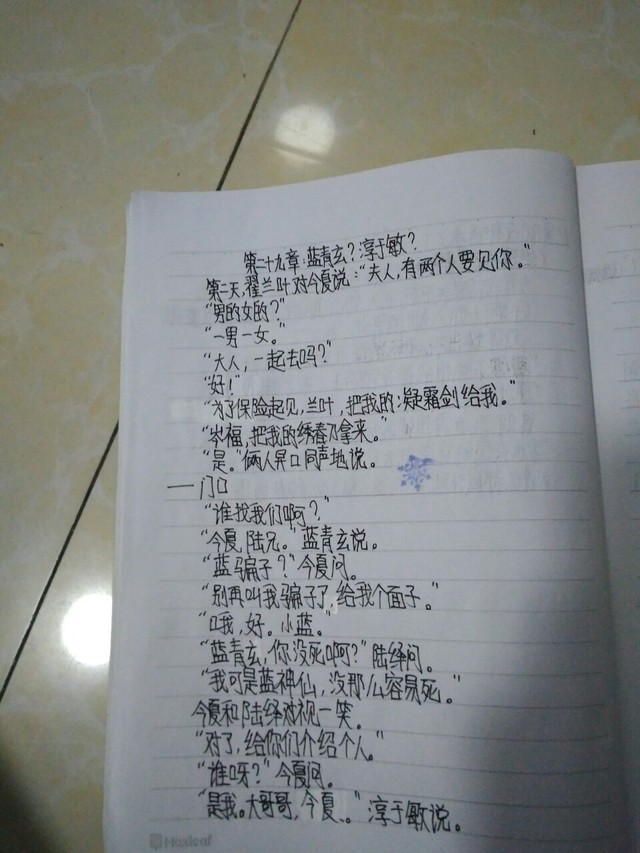 第二十九章:蓝青玄?淳于敏?
第二天,翟兰叶对今夏说:“夫人,有两个人要见你。”
“男的女的?”
“一男一女。”
“大人,一起去吗?”
“好!”
“为了保险起见,兰叶,把我的凝霜剑给我。”
“岑福,把我的绣春刀拿来。”
“是。”俩人异口同声地说。
——门口
“谁找我们啊?”
“今夏,陆兄。”蓝青玄说。
“蓝骗子?”今夏问。
“别再叫我骗子了,给我个面子。”
“哦,好。小蓝。”
“蓝青玄,你没死啊?”陆绎问。
“我可是蓝神仙,没那么容易死。”
今夏和陆绎对视一笑。
“对了,给你们介绍个人。”
“谁呀?”今夏问。
“是我。大哥哥,今夏、。”淳于敏说。
Maxleaf